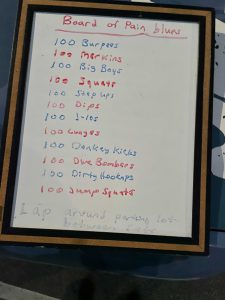 Board of Pain blues
100 Burpees
100 Merkins
100 Big Boys
100 Squats
100 Step ups
100 Dips
100 Lunges
100 Donkey Kicks
100 Dive Bombers
100 Dirty Hookups
100 Jump Squats
Lap around parking lot
between